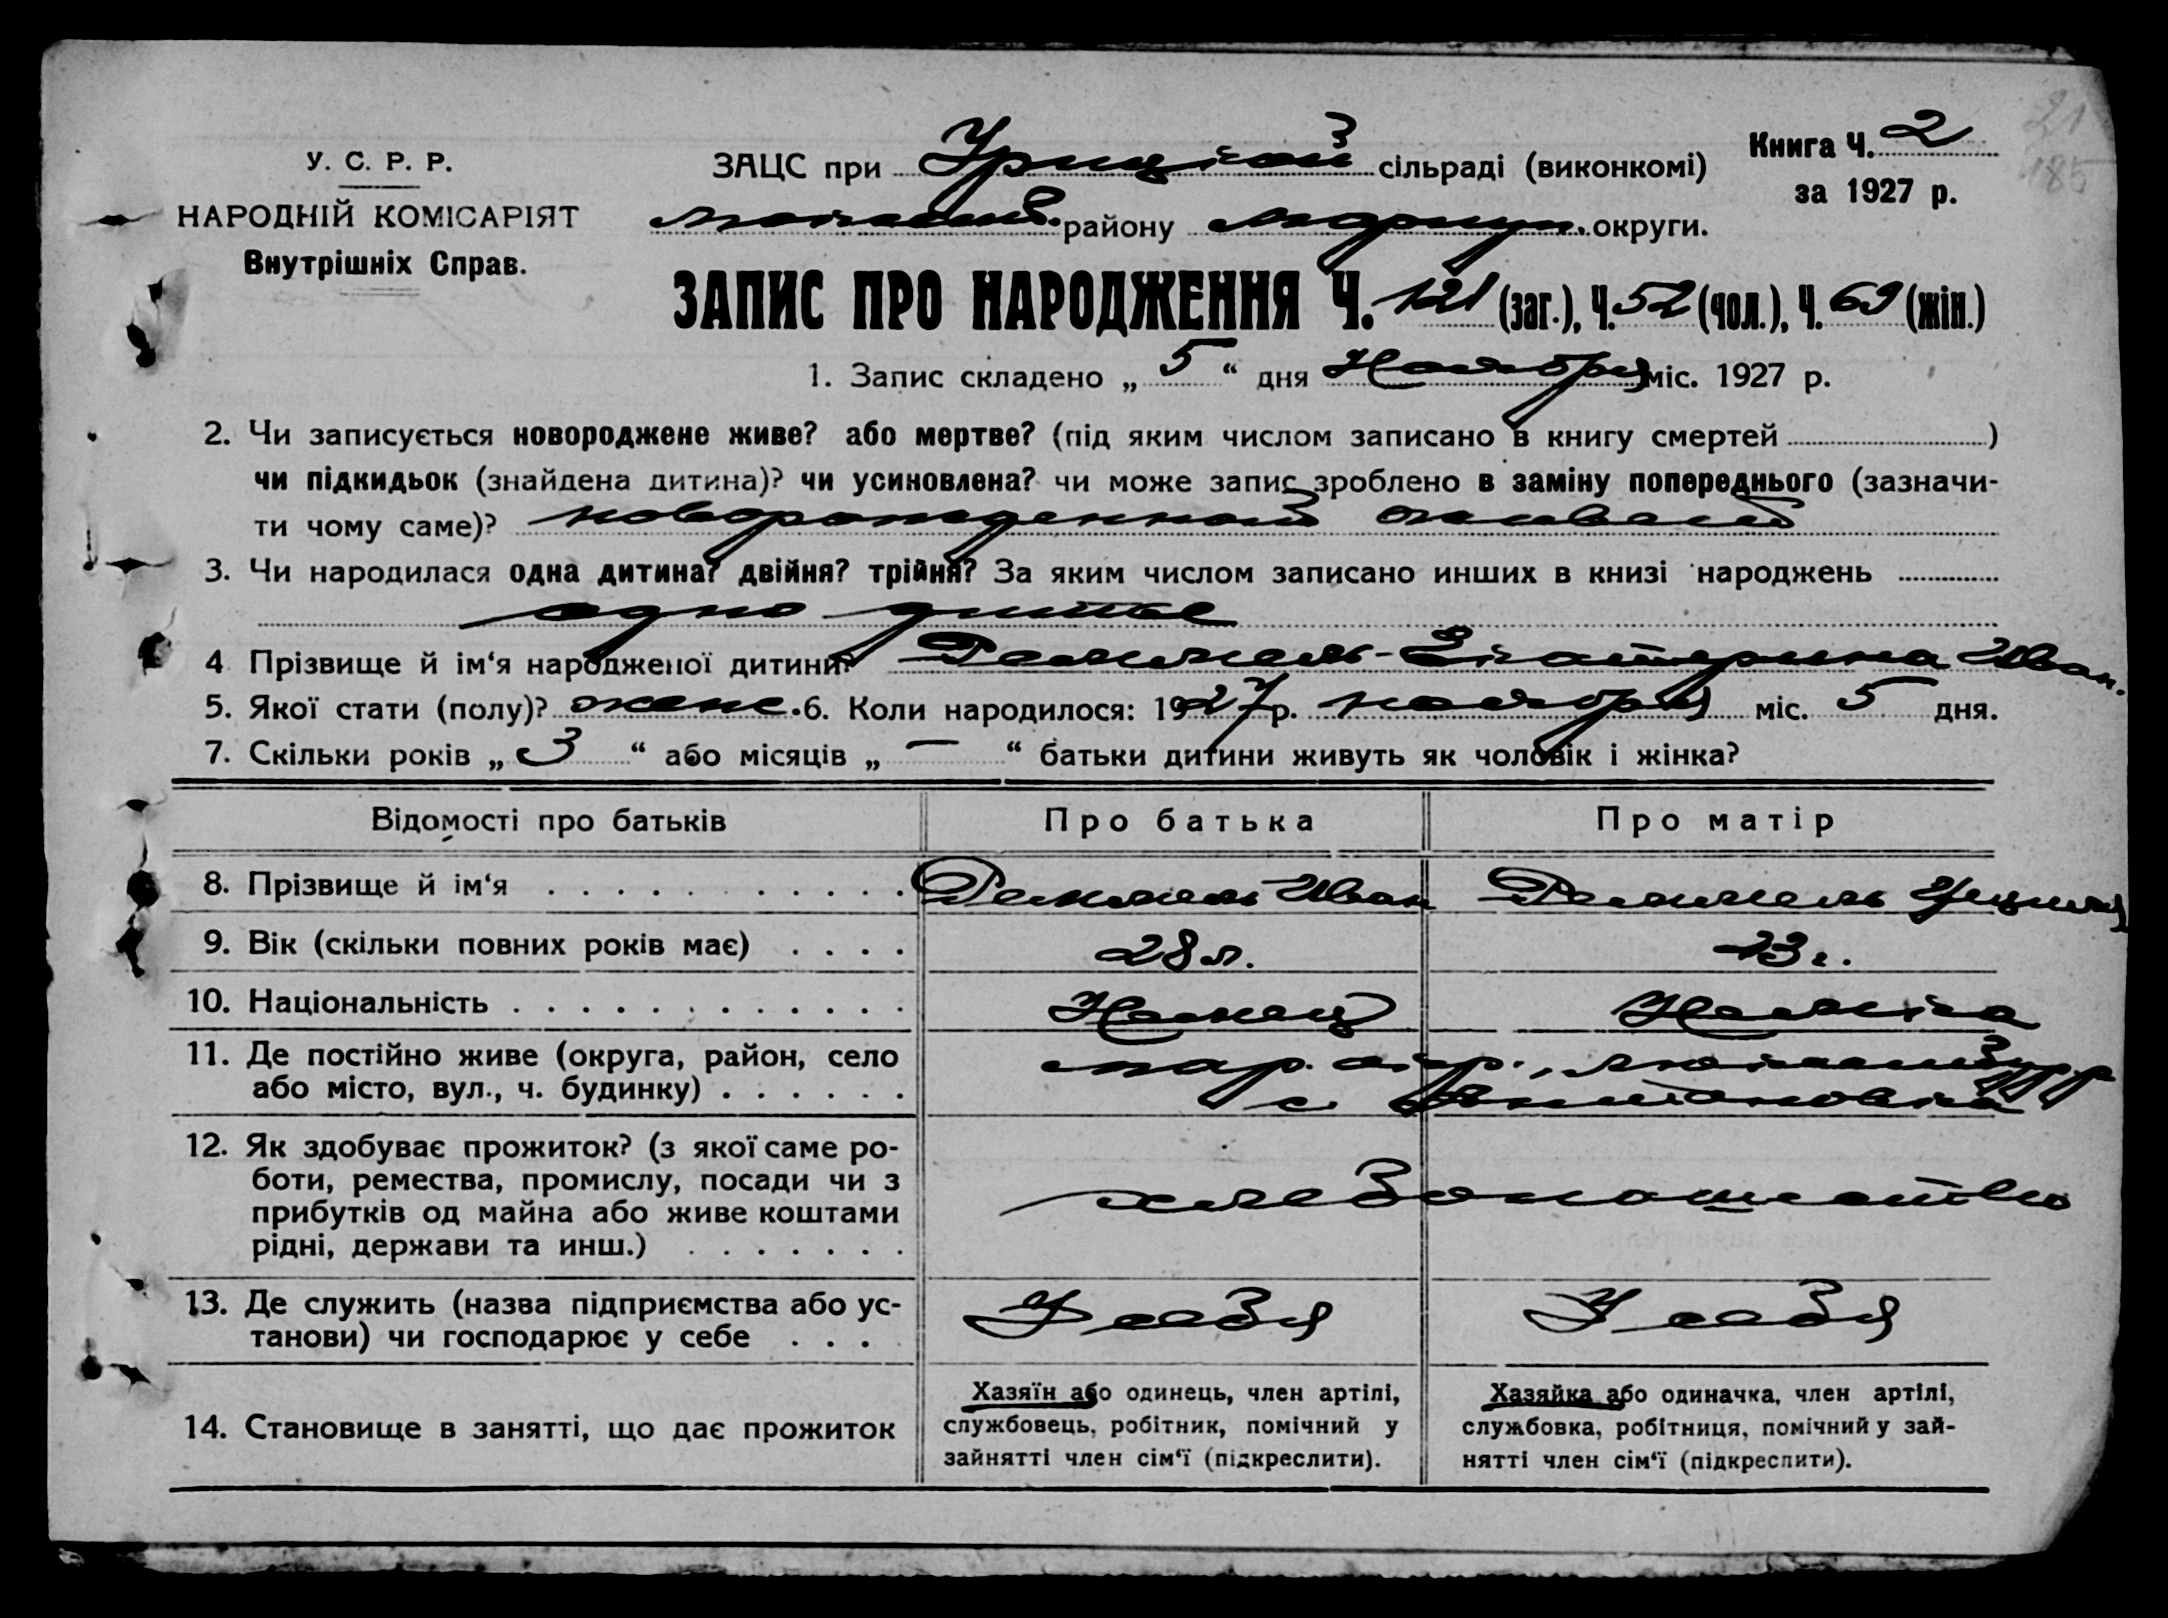 21
185
У. С. Р. Р.
НАРОДНІЙ КОМІСАРІЯТ
Внутрішніх Справ.
ЗАЦС при Урицкой сільраді (виконкомі)
району Мариуп. округи.
Книга Ч. 2
за 1927 р.
ЗАПИС ПРО НАРОДЖЕННЯ Ч. 121 (заг.), Ч. 52 (чол.), Ч. 69 (жін.)
1. Запис складено „ 5 “ дня Ноября міс. 1927 р.
2. Чи записується новороджене живе? або мертве? (під яким числом записано в книгу смертей )
чи підкидьок (знайдена дитина)? чи усиновлена? чи може запис зроблено в заміну попереднього (зазначи-
ти чому саме)? новорожденной живой
3. Чи народилася одна дитина? двійня? трійня? За яким числом записано инших в книзі народжень
одно дитье
4 Прізвище й ім‘я народженої дитини? Екатерина Иван.
5. Якої стати (полу)? женс. 6. Коли народилося: 1927 р. ноября міс. 5 дня.
7. Скільки років „ 3 “ або місяців „ — “ батьки дитини живуть як чоловік і жінка?
Відомості про батьків Про батька Про матір
8. Прізвище й ім‘я Иван
9. Вік (скільки повних років має) 28 л. 23 г.
10. Національність Немец Немкіа
11. Де постійно живе (округа, район, село
або місто, вул., ч. будинку) мар. окр., с.
12. Як здобуває прожиток? (з якої саме ро-
боти, ремества, промислу, посади чи з
прибутків од майна або живе коштами
рідні, держави та инш.) хлебопашество
13. Де служить (назва підприємства або ус-
танови) чи господарює у себе У себя У себя
14. Становище в занятті, що дає прожиток
Хазяїн або одинець, член артілі,
службовець, робітник, помічний у
зайнятті член сім‘ї (підкреслити).
Хазяйка або одиначка, член артілі,
службовка, робітниця, помічний у зай-
нятті член сім‘ї (підкреслити).